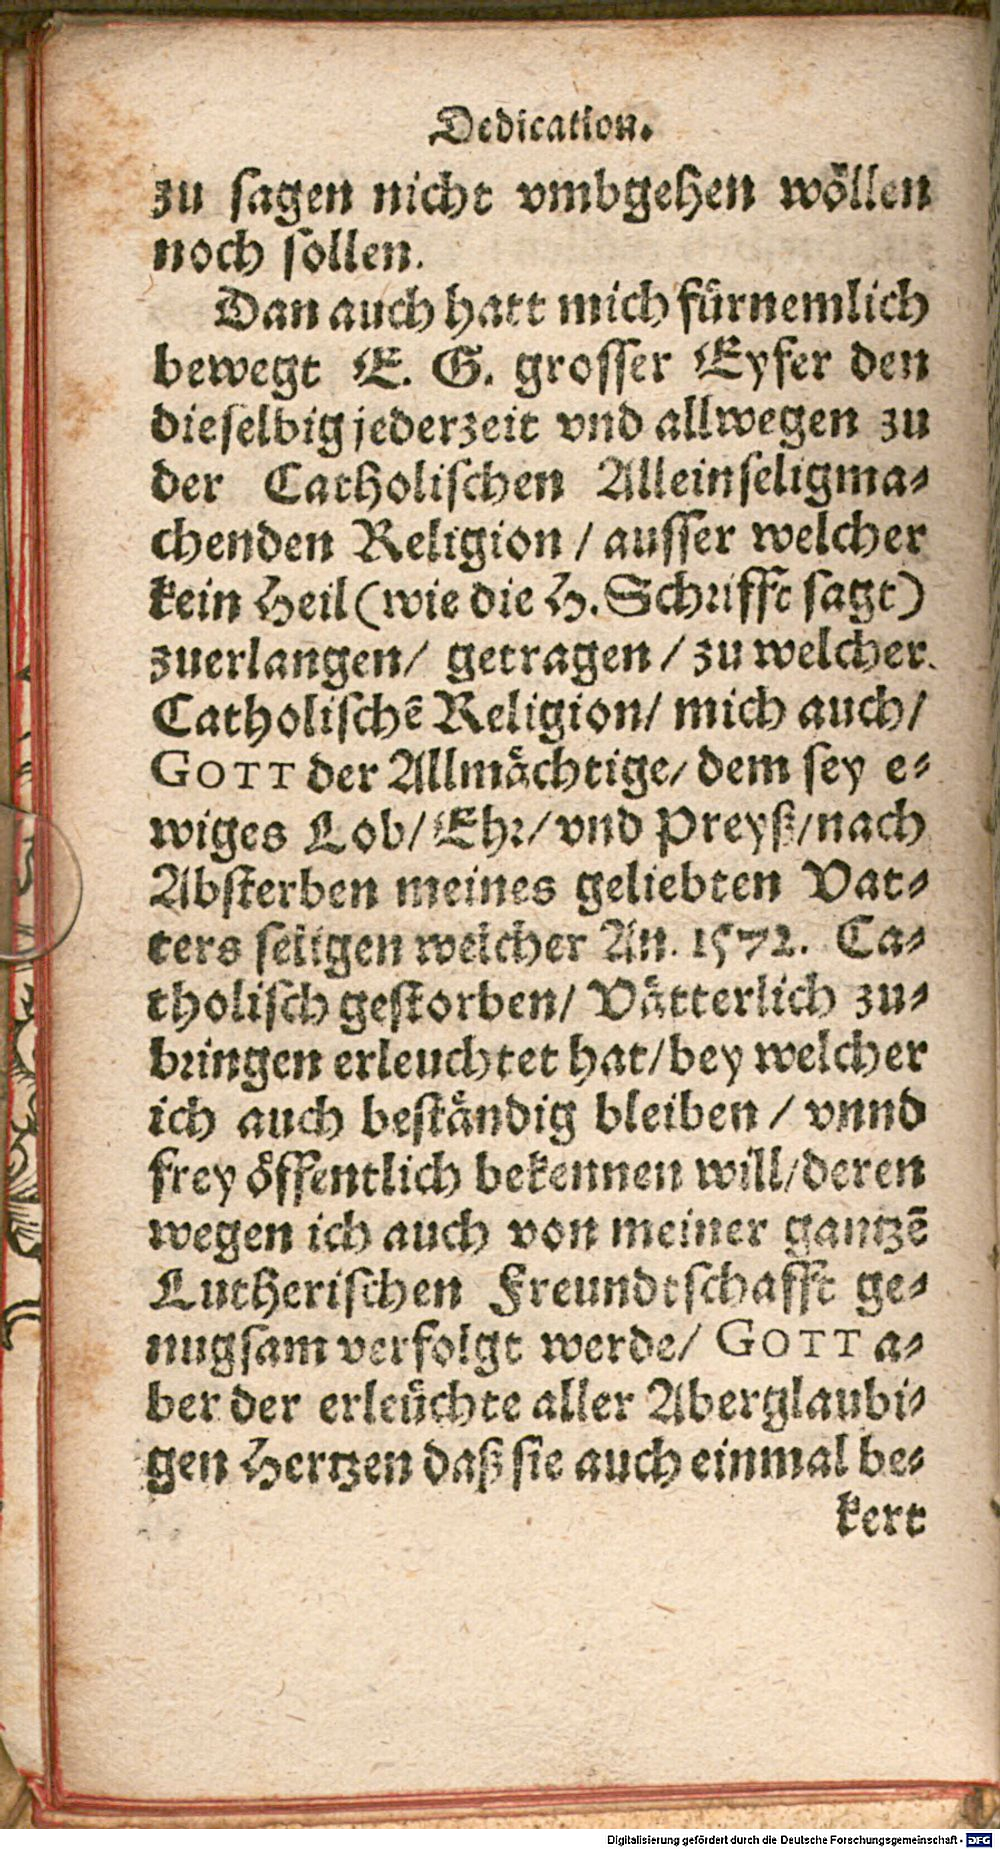 Dedication.
zu sagen nicht vmbgehen wöllen
noch sollen.
Dan auch hatt mich fürnemlich
bewegt E. G. grosser Eyfer den
dieselbig jederzeit vnd allwegen zu
der Catholischen Alleinseligma-
chenden Religion / ausser welcher
kein Heil (wie die H. Schrifft sagt)
zuerlangen/ getragen / zu welcher
Catholischē Religion/ mich auch/
GOTT der Allmächtige/ dem sey e-
wiges Lob/ Ehr/ vnd Preyß/nach
Absterben meines geliebten Vat-
ters seligen welcher An. 1572. Ca-
tholisch gestorben/ Vätterlich zu-
bringen erleuchtet hat/bey welcher
ich auch beständig bleiben / vnnd
frey öffentlich bekennen will/deren
wegen ich auch von meiner gantzē
Lutherischen Freundtschafft ge-
nugsam verfolgt werde/ GOTT a-
ber der erleüchte aller Aberglaubi-
gen Hertzen daß sie auch einmal be-
kert
Digitalisierung gefördert durch die Deutsche Forschungsgemeinschaft - DFG